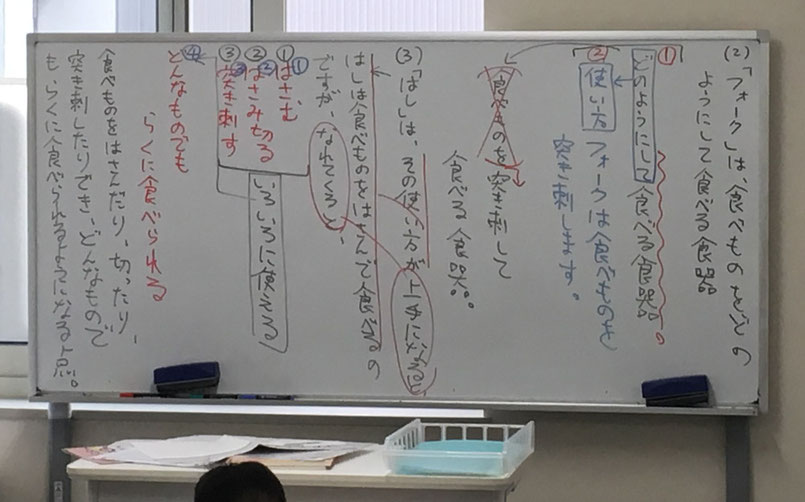 (2)「フォーク」は、食べものをどの
ようにして食べる食器
①
どのようにして食べる食器。
②
使い方 フォークは食べものを
突き刺します。
食べものを突き刺して
食べる食器。
(3)「はし」は、その使い方が上手になると、
はしは食べものをはさんで食べるの
ですが、なれてくると、
①はさむ①
②はさみ切る②
③突き刺す③
いろいろに使える
④
どんなものでも
らくに食べられる
食べものをはさんだり、切ったり、
突き刺したりでき、どんなもので
もらくに食べられるようになる点。